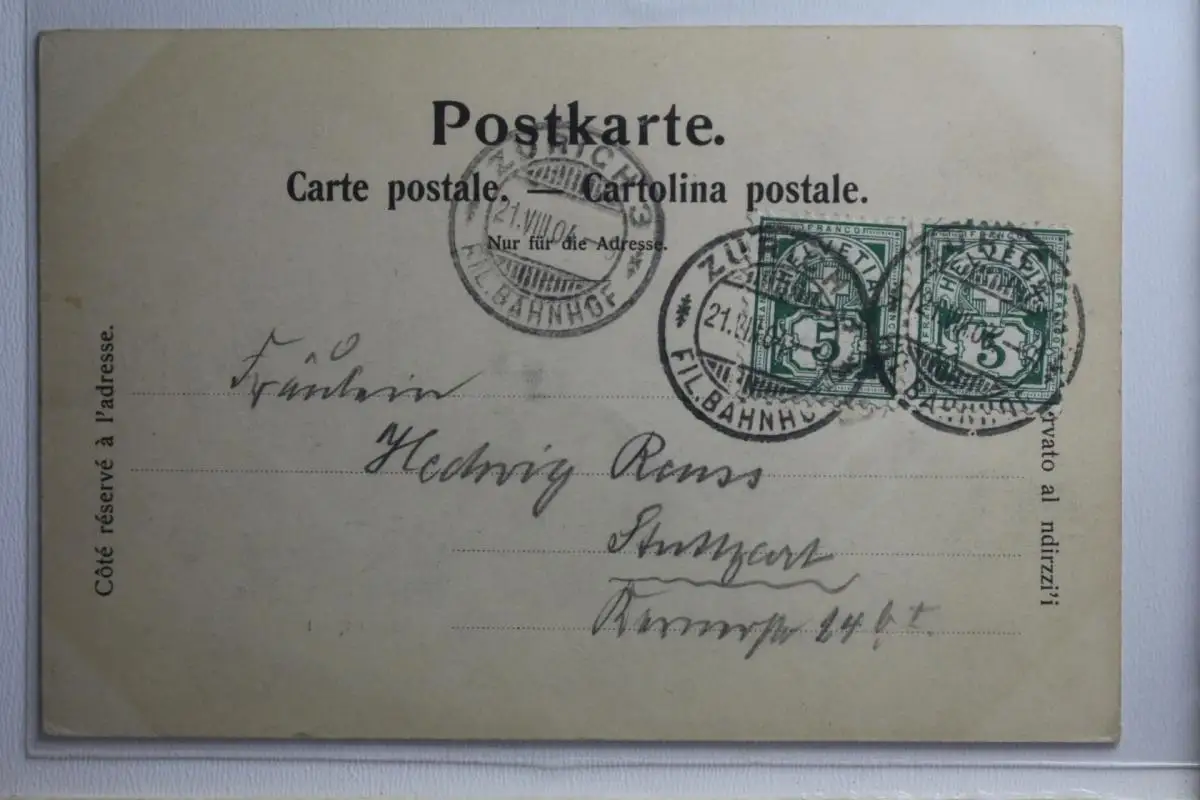 Postkarte.
Carte postale. — Cartolina postale.
Nur für die Adresse.
ZÜRICH 3
21.VIII.04
FIL.BAHNHOF
ZÜRICH
21.VIII.04
FIL.BAHNHOF
FRANCO
HELVETIA
5
FRANCO
HELVETIA
5
Côté réservé à l'adresse.
rvato al ndirzzi'i
Fräulein
Hedwig Reuss
Stuttgart
Kernerstr 24